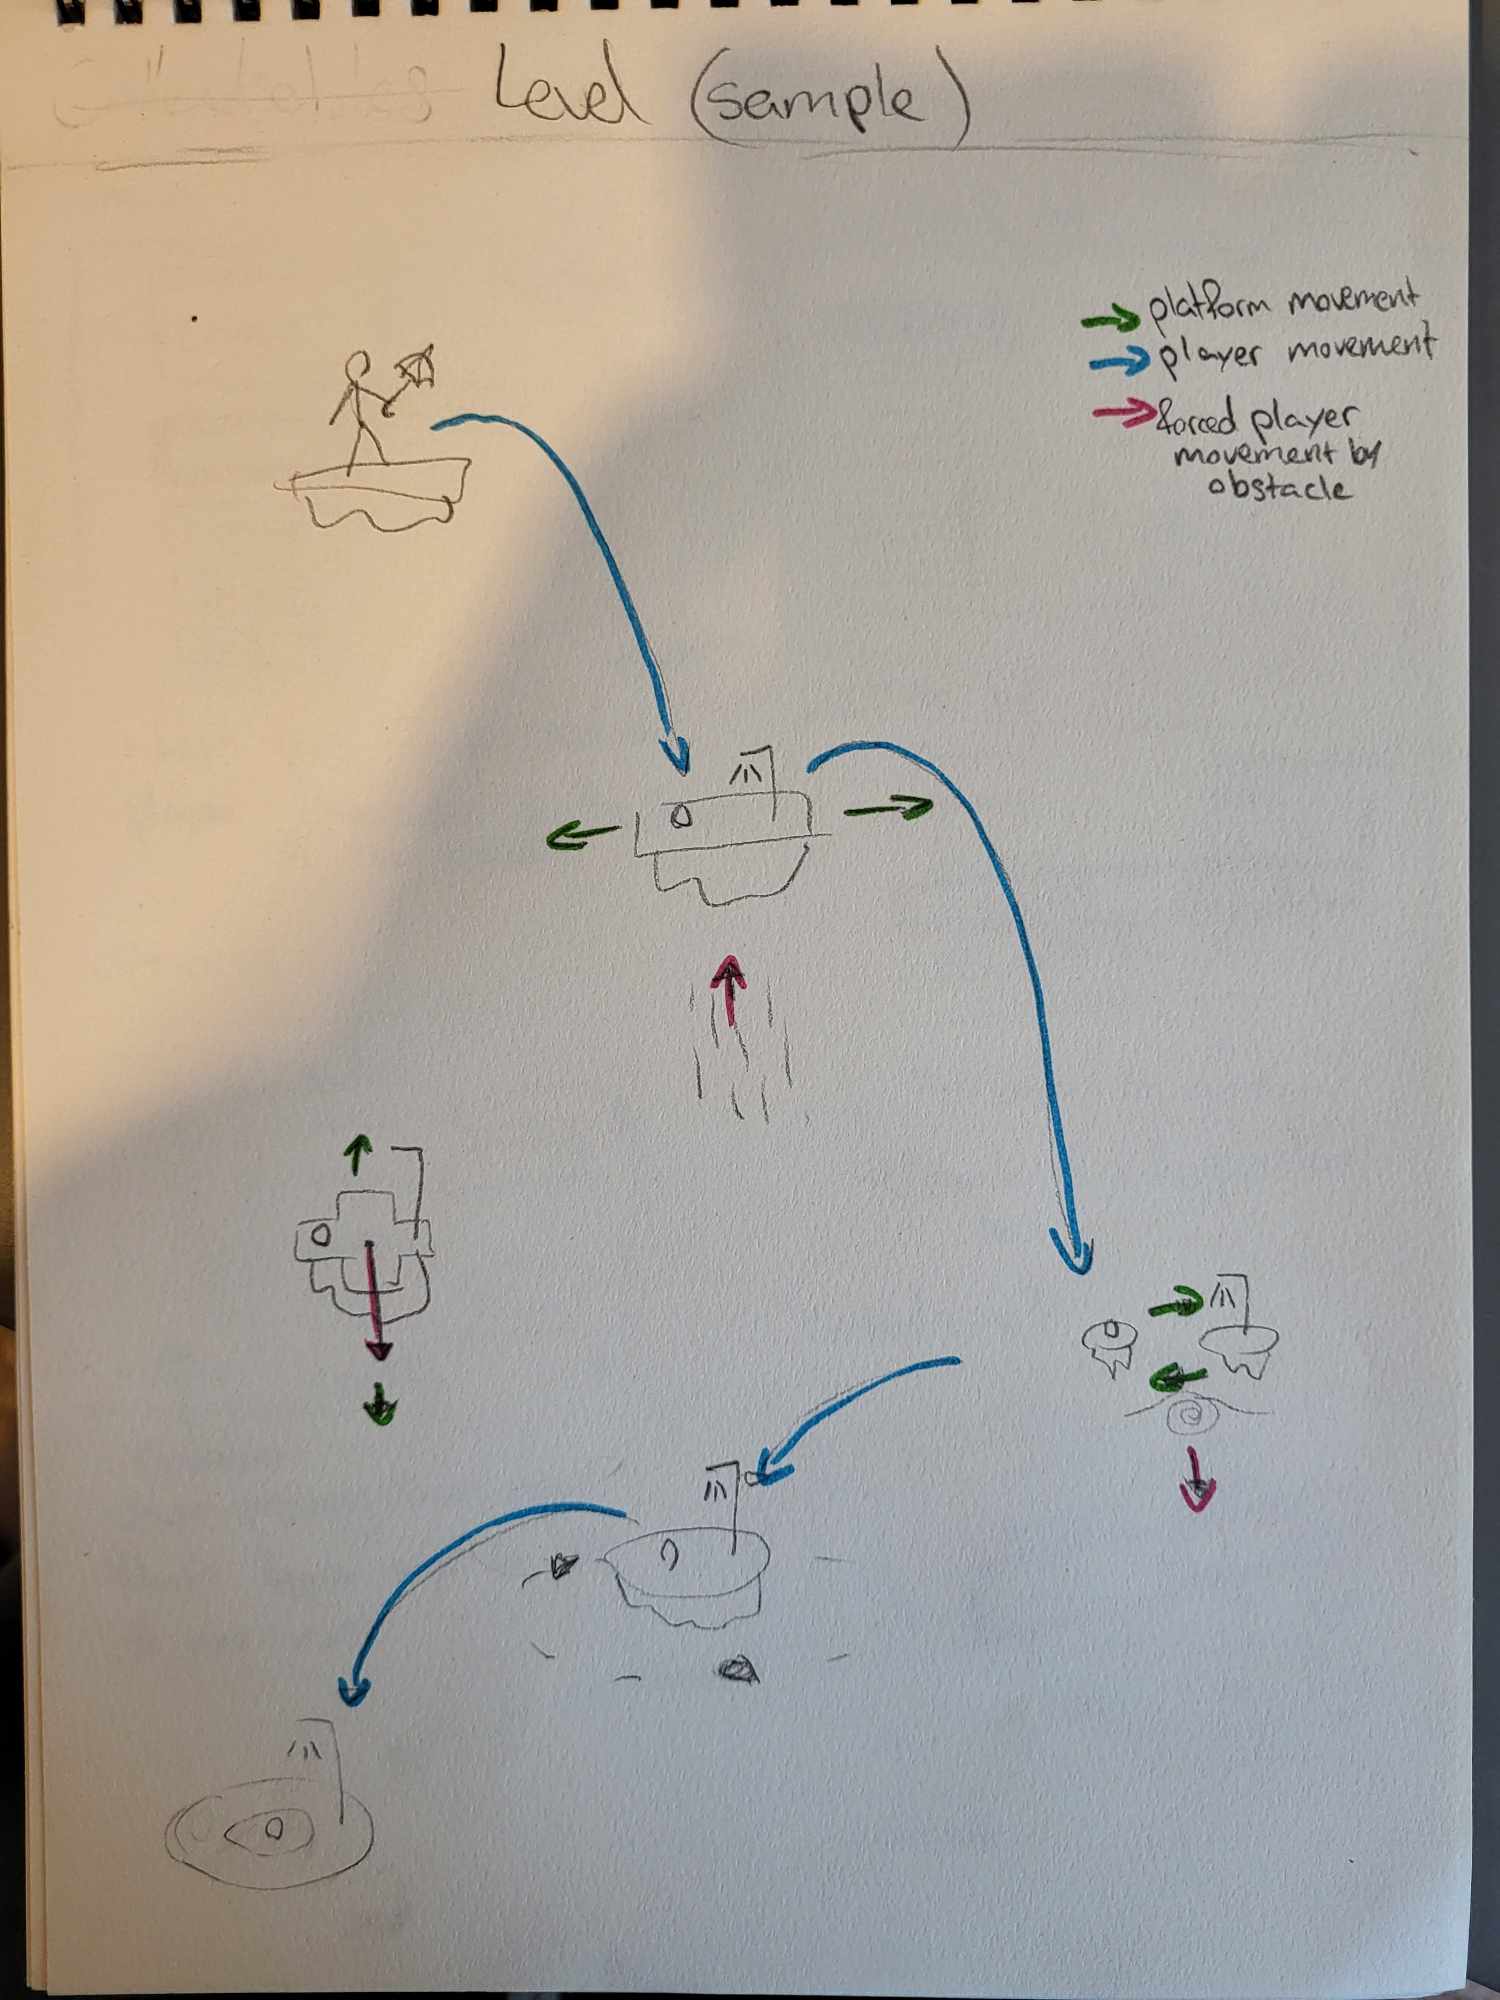 Level (sample)
platform movement
player movement
forced player
movement by
obstacle